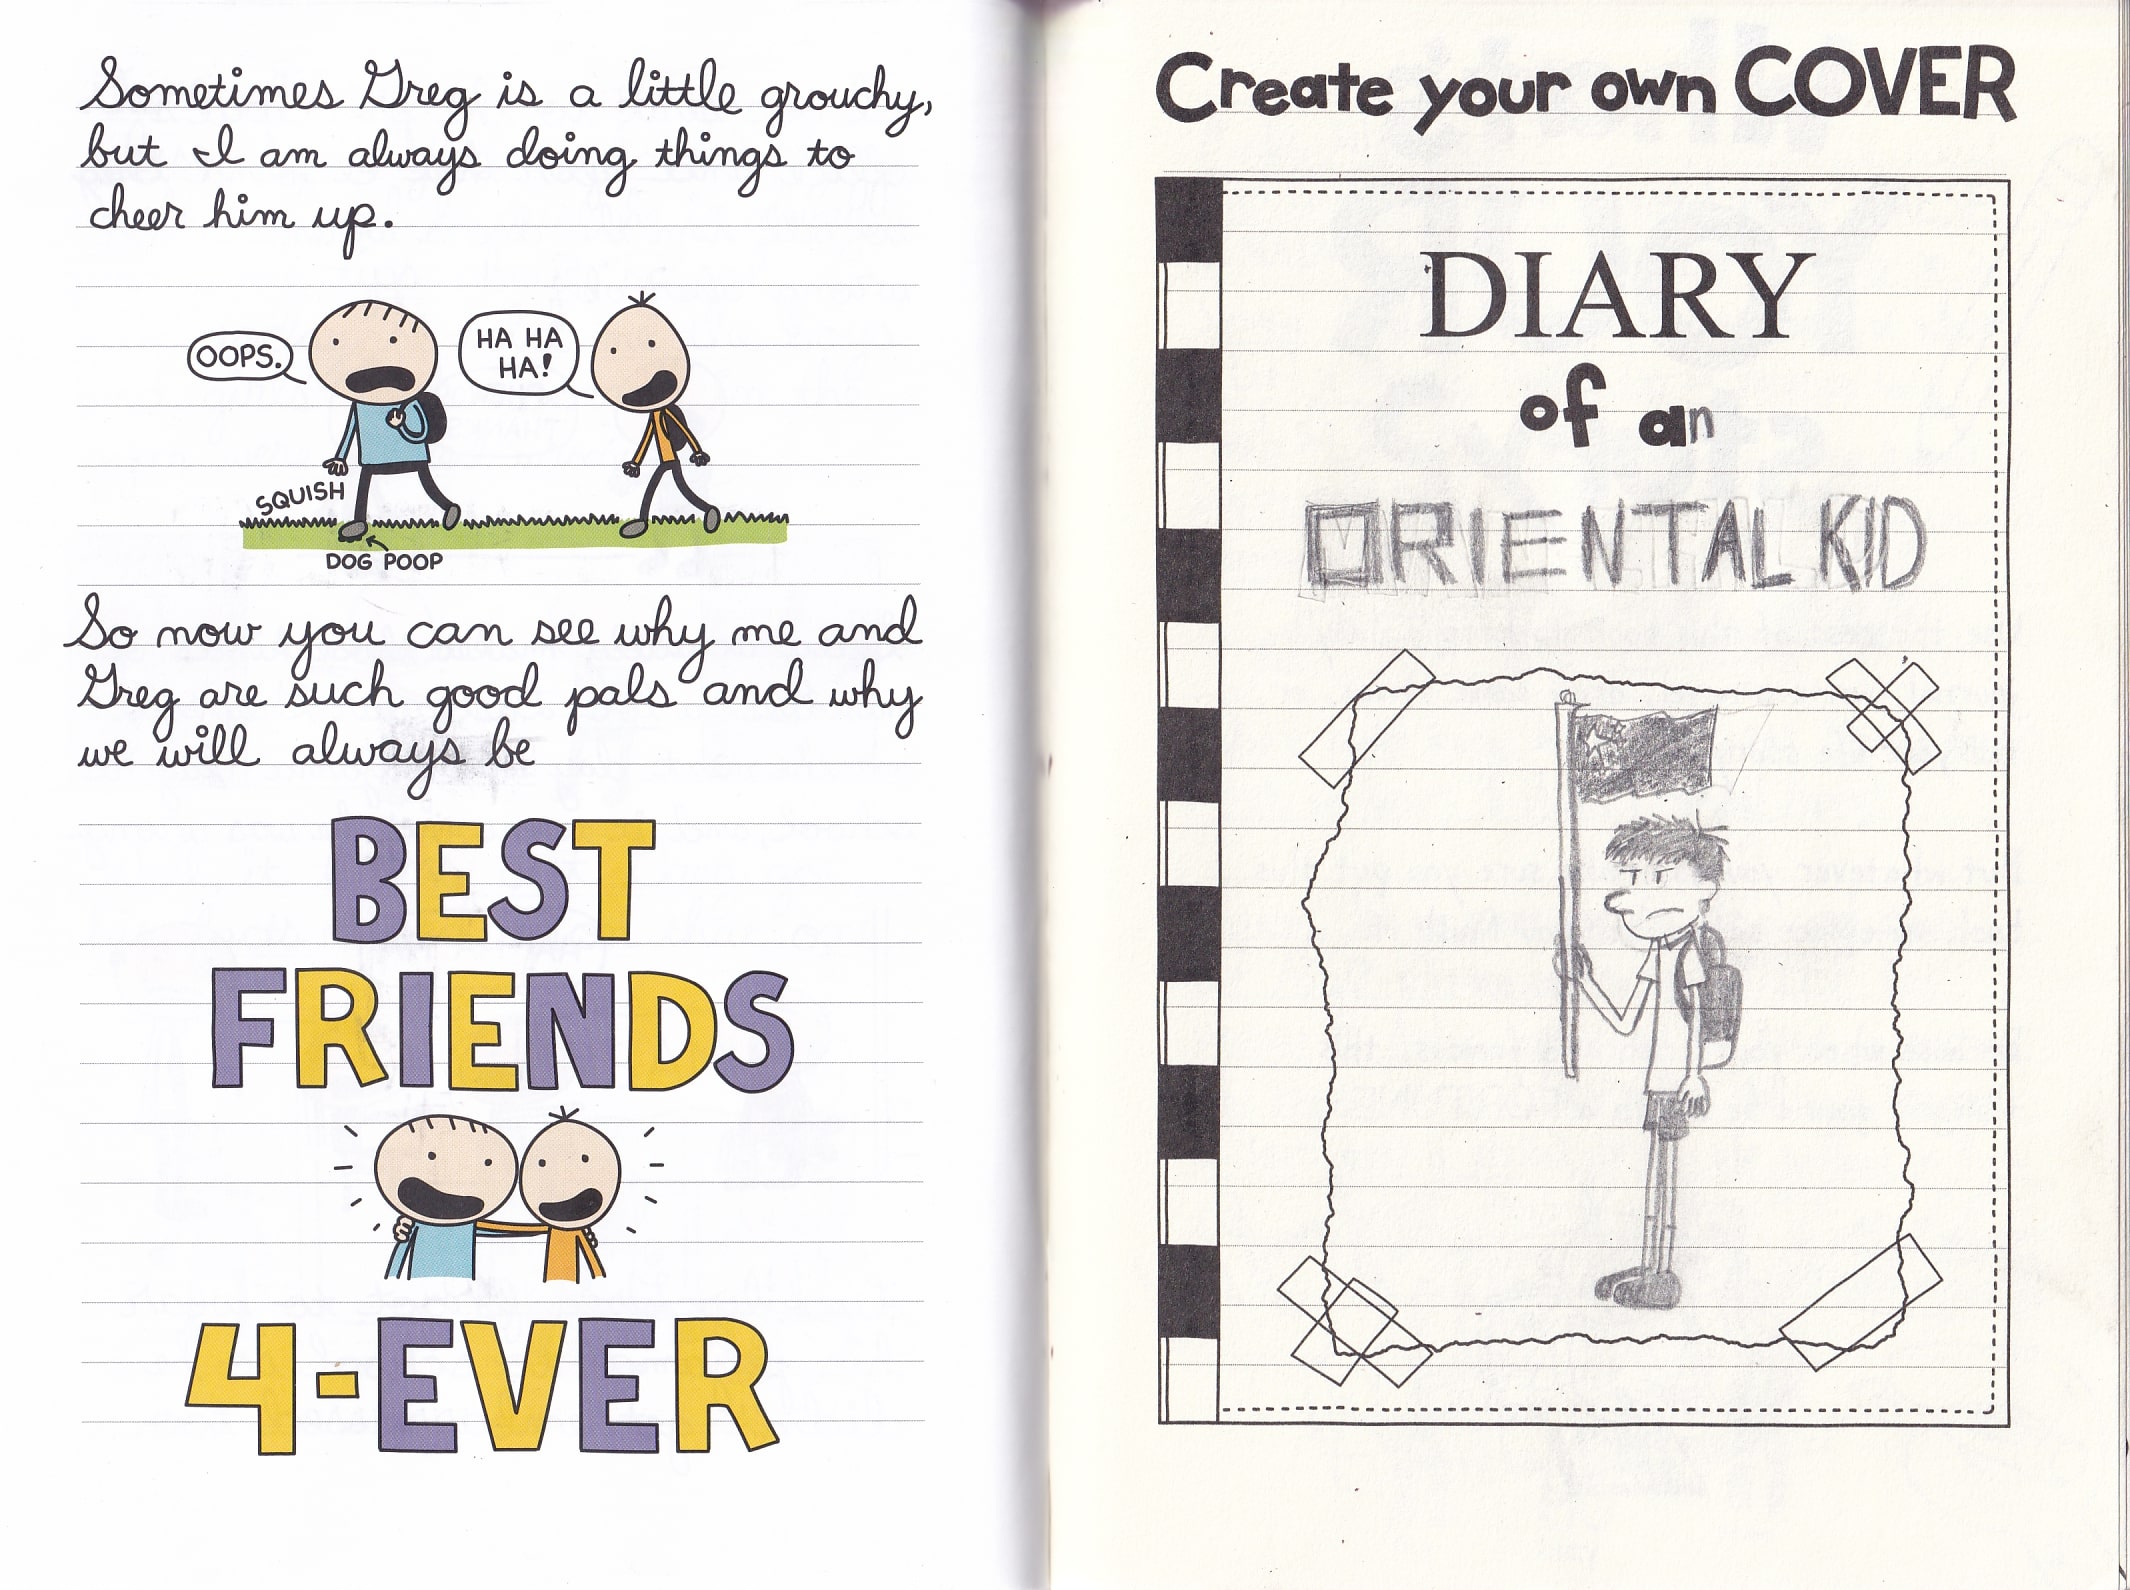 Sometimes Greg is a little grouchy,
but I am always doing things to
cheer him up.
OOPS.
HA HA
HA!
SQUISH
DOG POOP
So now you can see why me and
Greg are such good pals and why
we will always be
BEST
FRIENDS
4-EVER
Create your own COVER
DIARY
of an
ORIENTAL KID